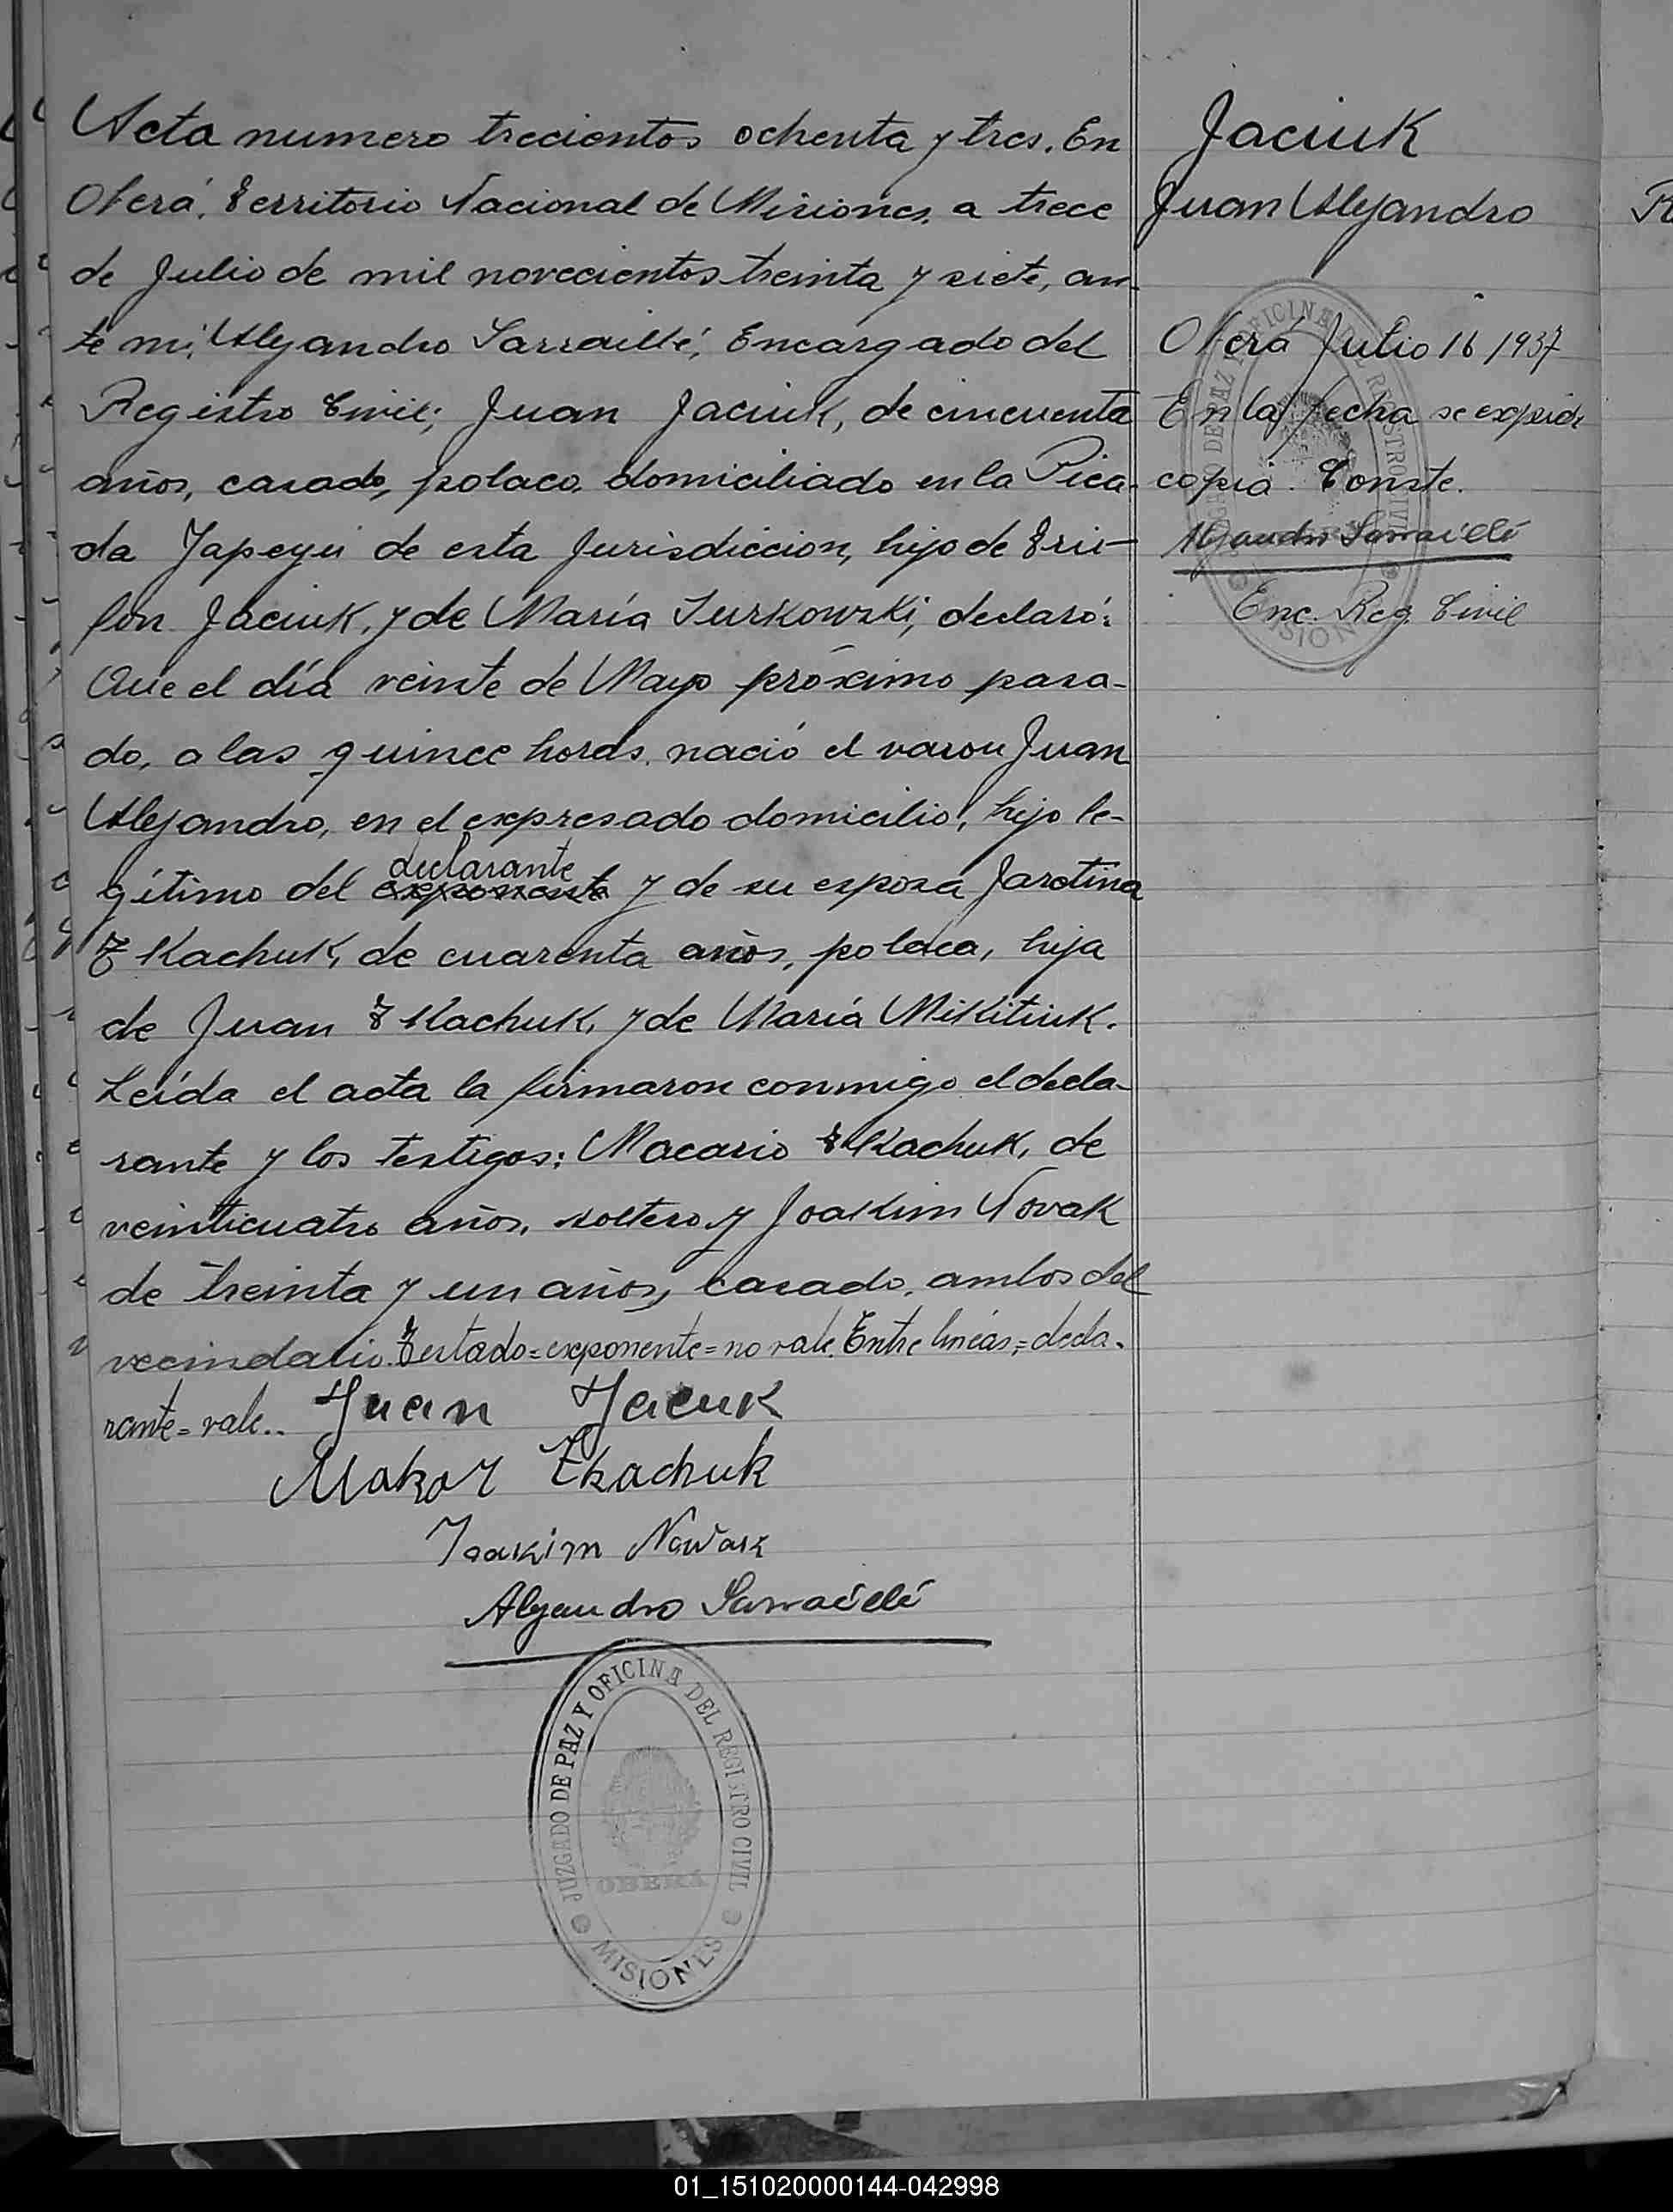 Acta numero trecientos ochenta y tres. En
Oberá, Territorio Nacional de Misiones, a trece
de Julio de mil novecientos treinta y siete, an-
te mi, Alejandro Sarraillé, Encargado del
Registro Civil; Juan Jaciuk, de cincuenta
años, casado, polaco, domiciliado en la Pica-
da Yapeyú de esta Jurisdiccion, hijo de Tri-
fón Jaciuk, y de María Turkowski, declaró:
Que el día veinte de Mayo próximo pasa-
do, a las quince horas, nació el varon Juan
Alejandro, en el expresado domicilio, hijo le-
declarante
gítimo del exponente y de su esposa Jarotina
Tkachuk, de cuarenta años, polaca, hija
de Juan Tkachuk, y de María Mikitiuk.
Leída el acta la firmaron conmigo el decla-
rante y los testigos: Macario Tkachuk, de
veinticuatro años, soltero y Joakim Novak
de treinta y un años, casado, ambos del
vecindario. Testado=exponente=no vale. Entre lineas,=decla-
rante=vale..
Juan Jacuk
Makar Tkachuk
Joakim Nowak
Alejandro Sarraillé
JUZGADO DE PAZ Y OFICINA DEL REGISTRO CIVIL
OBERÁ
MISIONES
Jaciuk
Juan Alejandro
Oberá Julio 16/1937
En la fecha se expide
copia. Conste.
Alejandro Sarraillé
Enc. Reg. Civil
01_151020000144-042998